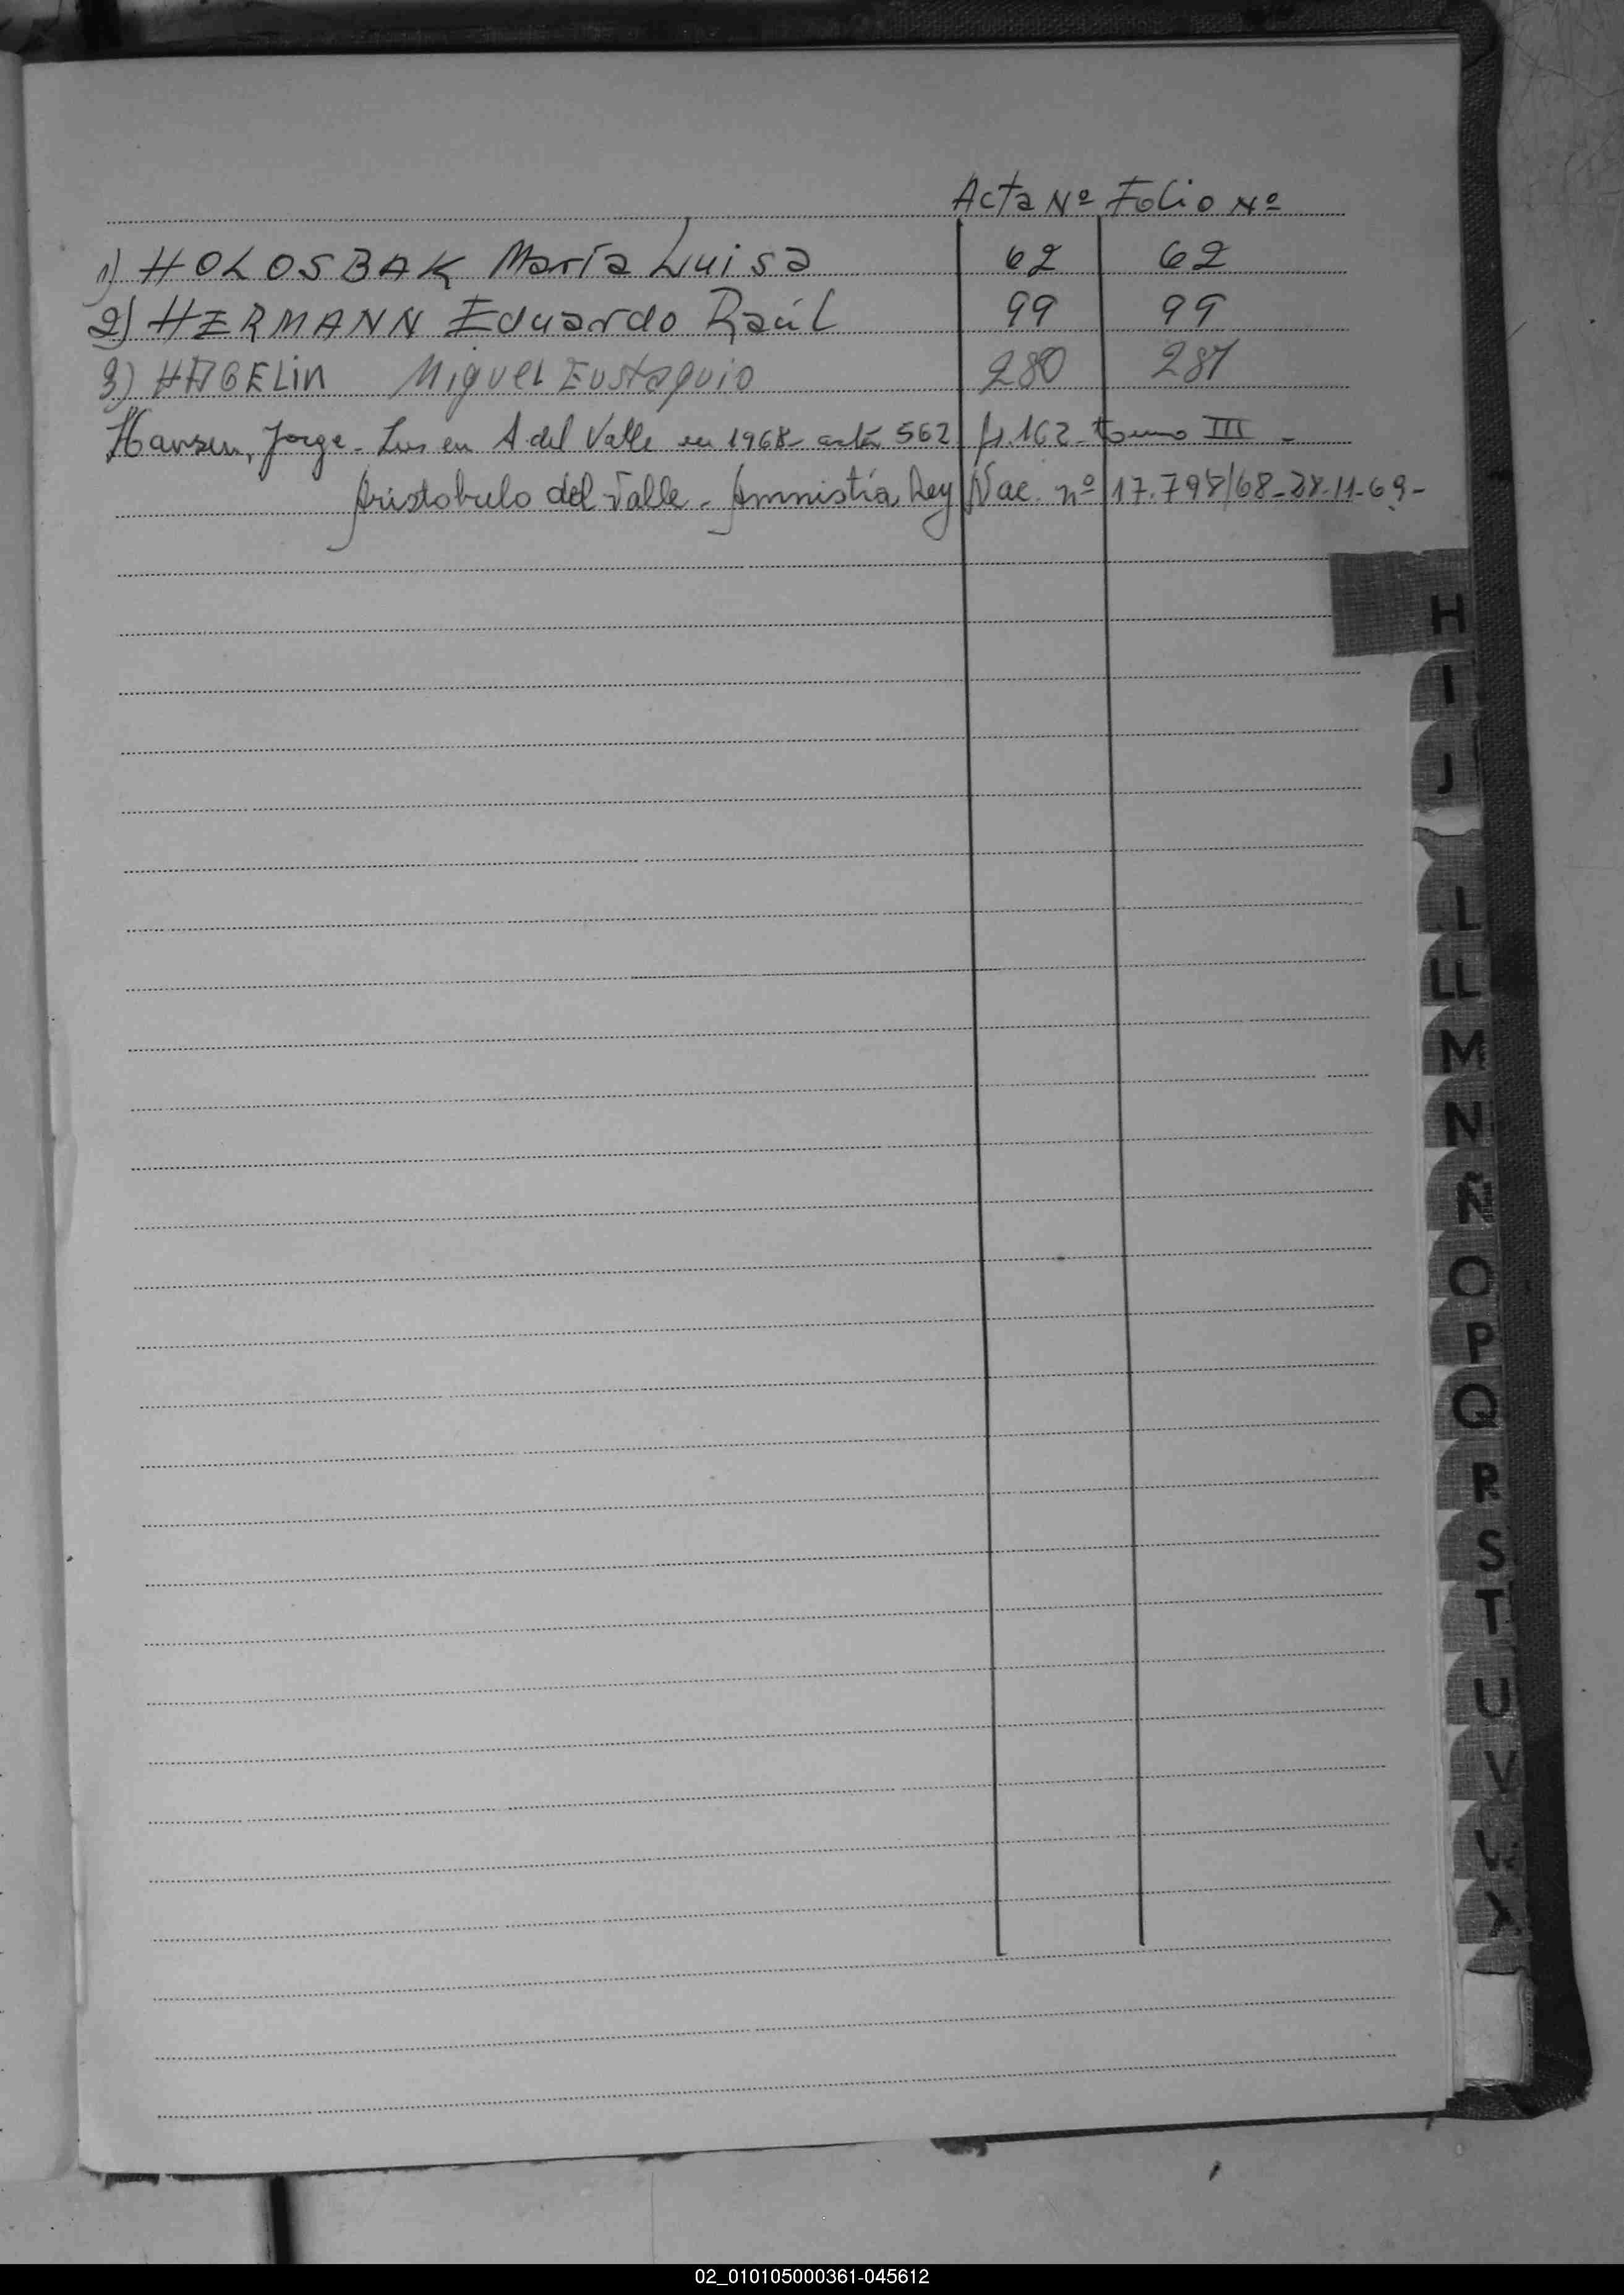 Acta Nº Folio Nº
1) HOLOSBAK María Luisa 62 62
2) HERMANN Eduardo Raúl 99 99
3) HAGELIN Miguel Eustaquio 280 281
Hansen, Jorge - Ins en A. del Valle en 1968 - acta 562 fs. 162 - tomo III -
Aristobulo del Valle - Amnistía Ley Nac. nº 17.798/68 - 28-11-69 -
H
I
J
L
LL
M
N
Ñ
O
P
Q
R
S
T
U
V
X
02_010105000361-045612